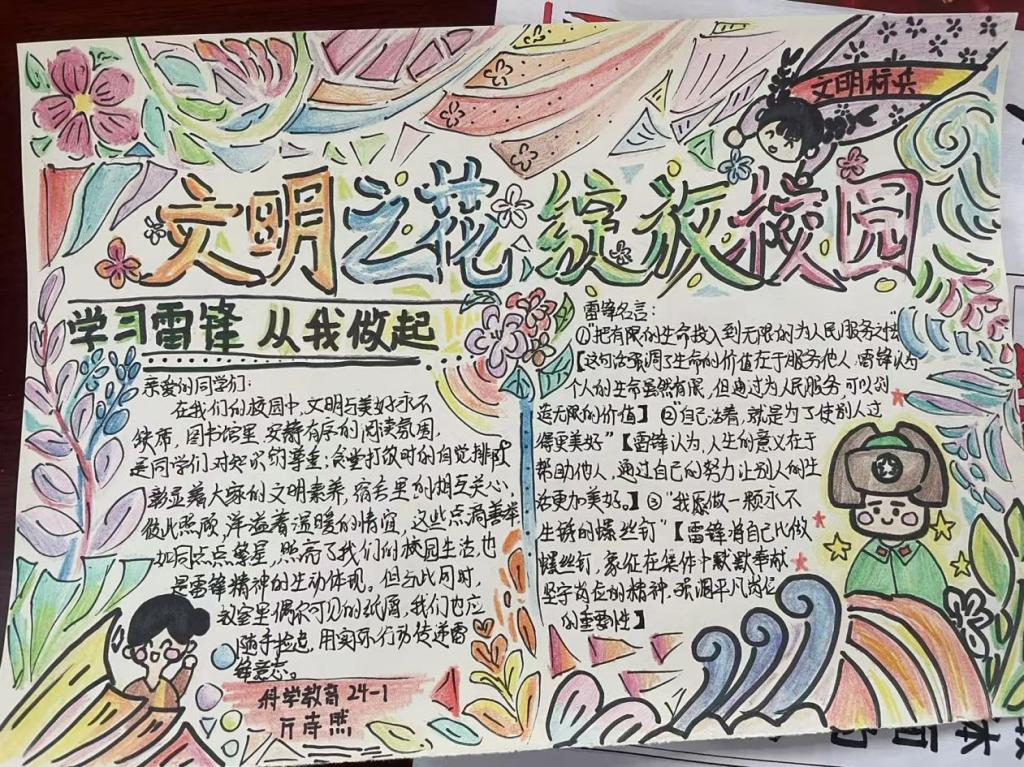 文明标兵
文明之花 绽放校园
学习雷锋 从我做起
亲爱的同学们:
在我们的校园中,文明与美好永不
缺席,图书馆里,安静有序的阅读氛围,
是同学们对知识的尊重;食堂打饭时的自觉排队
彰显着大家的文明素养,宿舍里的相互关心,
彼此照顾,洋溢着温暖的情谊,这些点滴善举
如同点点繁星,照亮了我们的校园生活,也
是雷锋精神的生动体现。但与此同时,
教室里偶尔可见的纸屑,我们也应
随手捡起,用实际行动传递雷
锋意志。
科学教育24-1
雷锋名言:
①“把有限的生命投入到无限的为人民服务之中去”
【这句话强调了生命的价值在于服务他人,雷锋认为
个人的生命虽然有限,但通过为人民服务,可以创
造无限的价值】②“自己活着,就是为了使别人过
得更美好”【雷锋认为,人生的意义在于
帮助他人,通过自己的努力让别人的生
活更加美好。】③“我愿做一颗永不
生锈的螺丝钉”【雷锋将自己比做
螺丝钉,象征在集体中默默奉献
坚守岗位的精神,强调平凡岗位
的重要性】